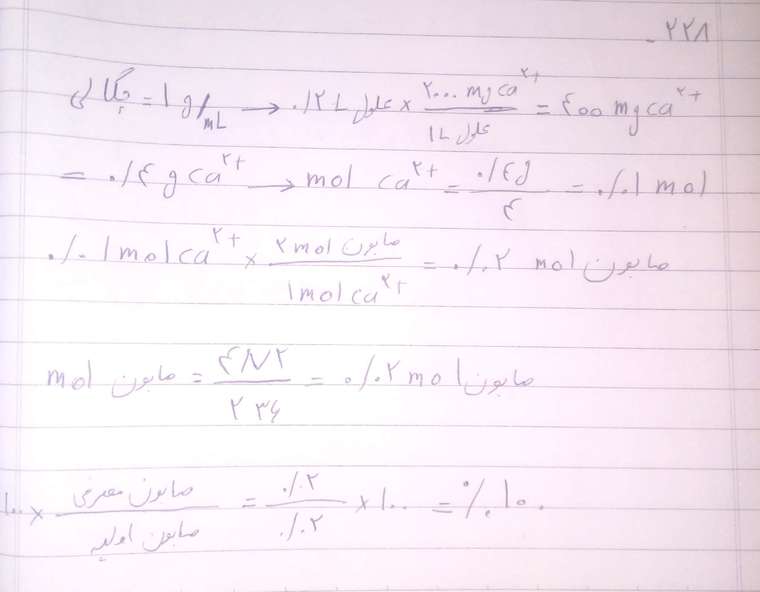 ۲۲۸-
چگالی = 1 g/mL → ۰/۲ L محلول × ۲۰۰۰ mg ca²⁺ / 1L محلول = ۴۰۰ mg ca²⁺
= ۰/۴ g ca²⁺ → mol ca²⁺ = ۰/۴g / ۴ = ۰/۰۱ mol
۰/۰۱ mol ca²⁺ × ۲ mol صابون / 1 mol ca²⁺ = ۰/۰۲ mol صابون
mol صابون = ۴/۷۲ / ۲۳۶ = ۰/۰۲ mol صابون
۱۰۰ × صابون مصرفی / صابون اولیه = ۰/۰۲ / ۰/۰۲ × ۱۰۰ = %۱۰۰